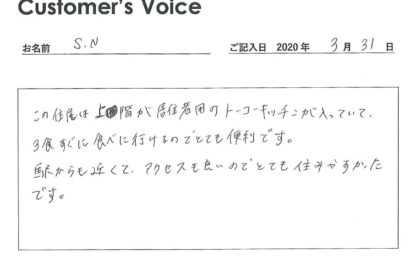 Customer's Voice
お名前 S.N ご記入日 2020年 3月 31日
この住居は 階が居住者用のトーコーキッチンが入っていて、
3食すぐに食べに行けるのでとても便利です。
駅からも近くて、アクセスも良いのでとても住みやすかった
です。